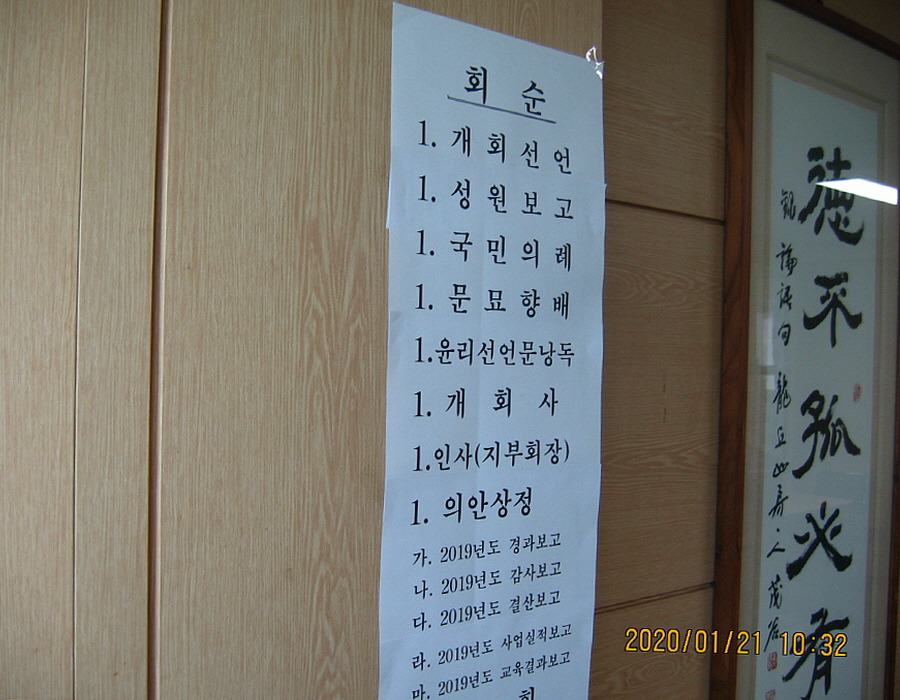 회 순
1. 개 회 선 언
1. 성 원 보 고
1. 국 민 의 례
1. 문 묘 향 배
1.윤리선언문낭독
1. 개 회 사
1.인사(지부회장)
1. 의안상정
가. 2019년도 경과보고
나. 2019년도 감사보고
다. 2019년도 결산보고
라. 2019년도 사업실적보고
마. 2019년도 교육결과보고
회
德不孤必有
論語句 龍丘山人
2020/01/21 10:32